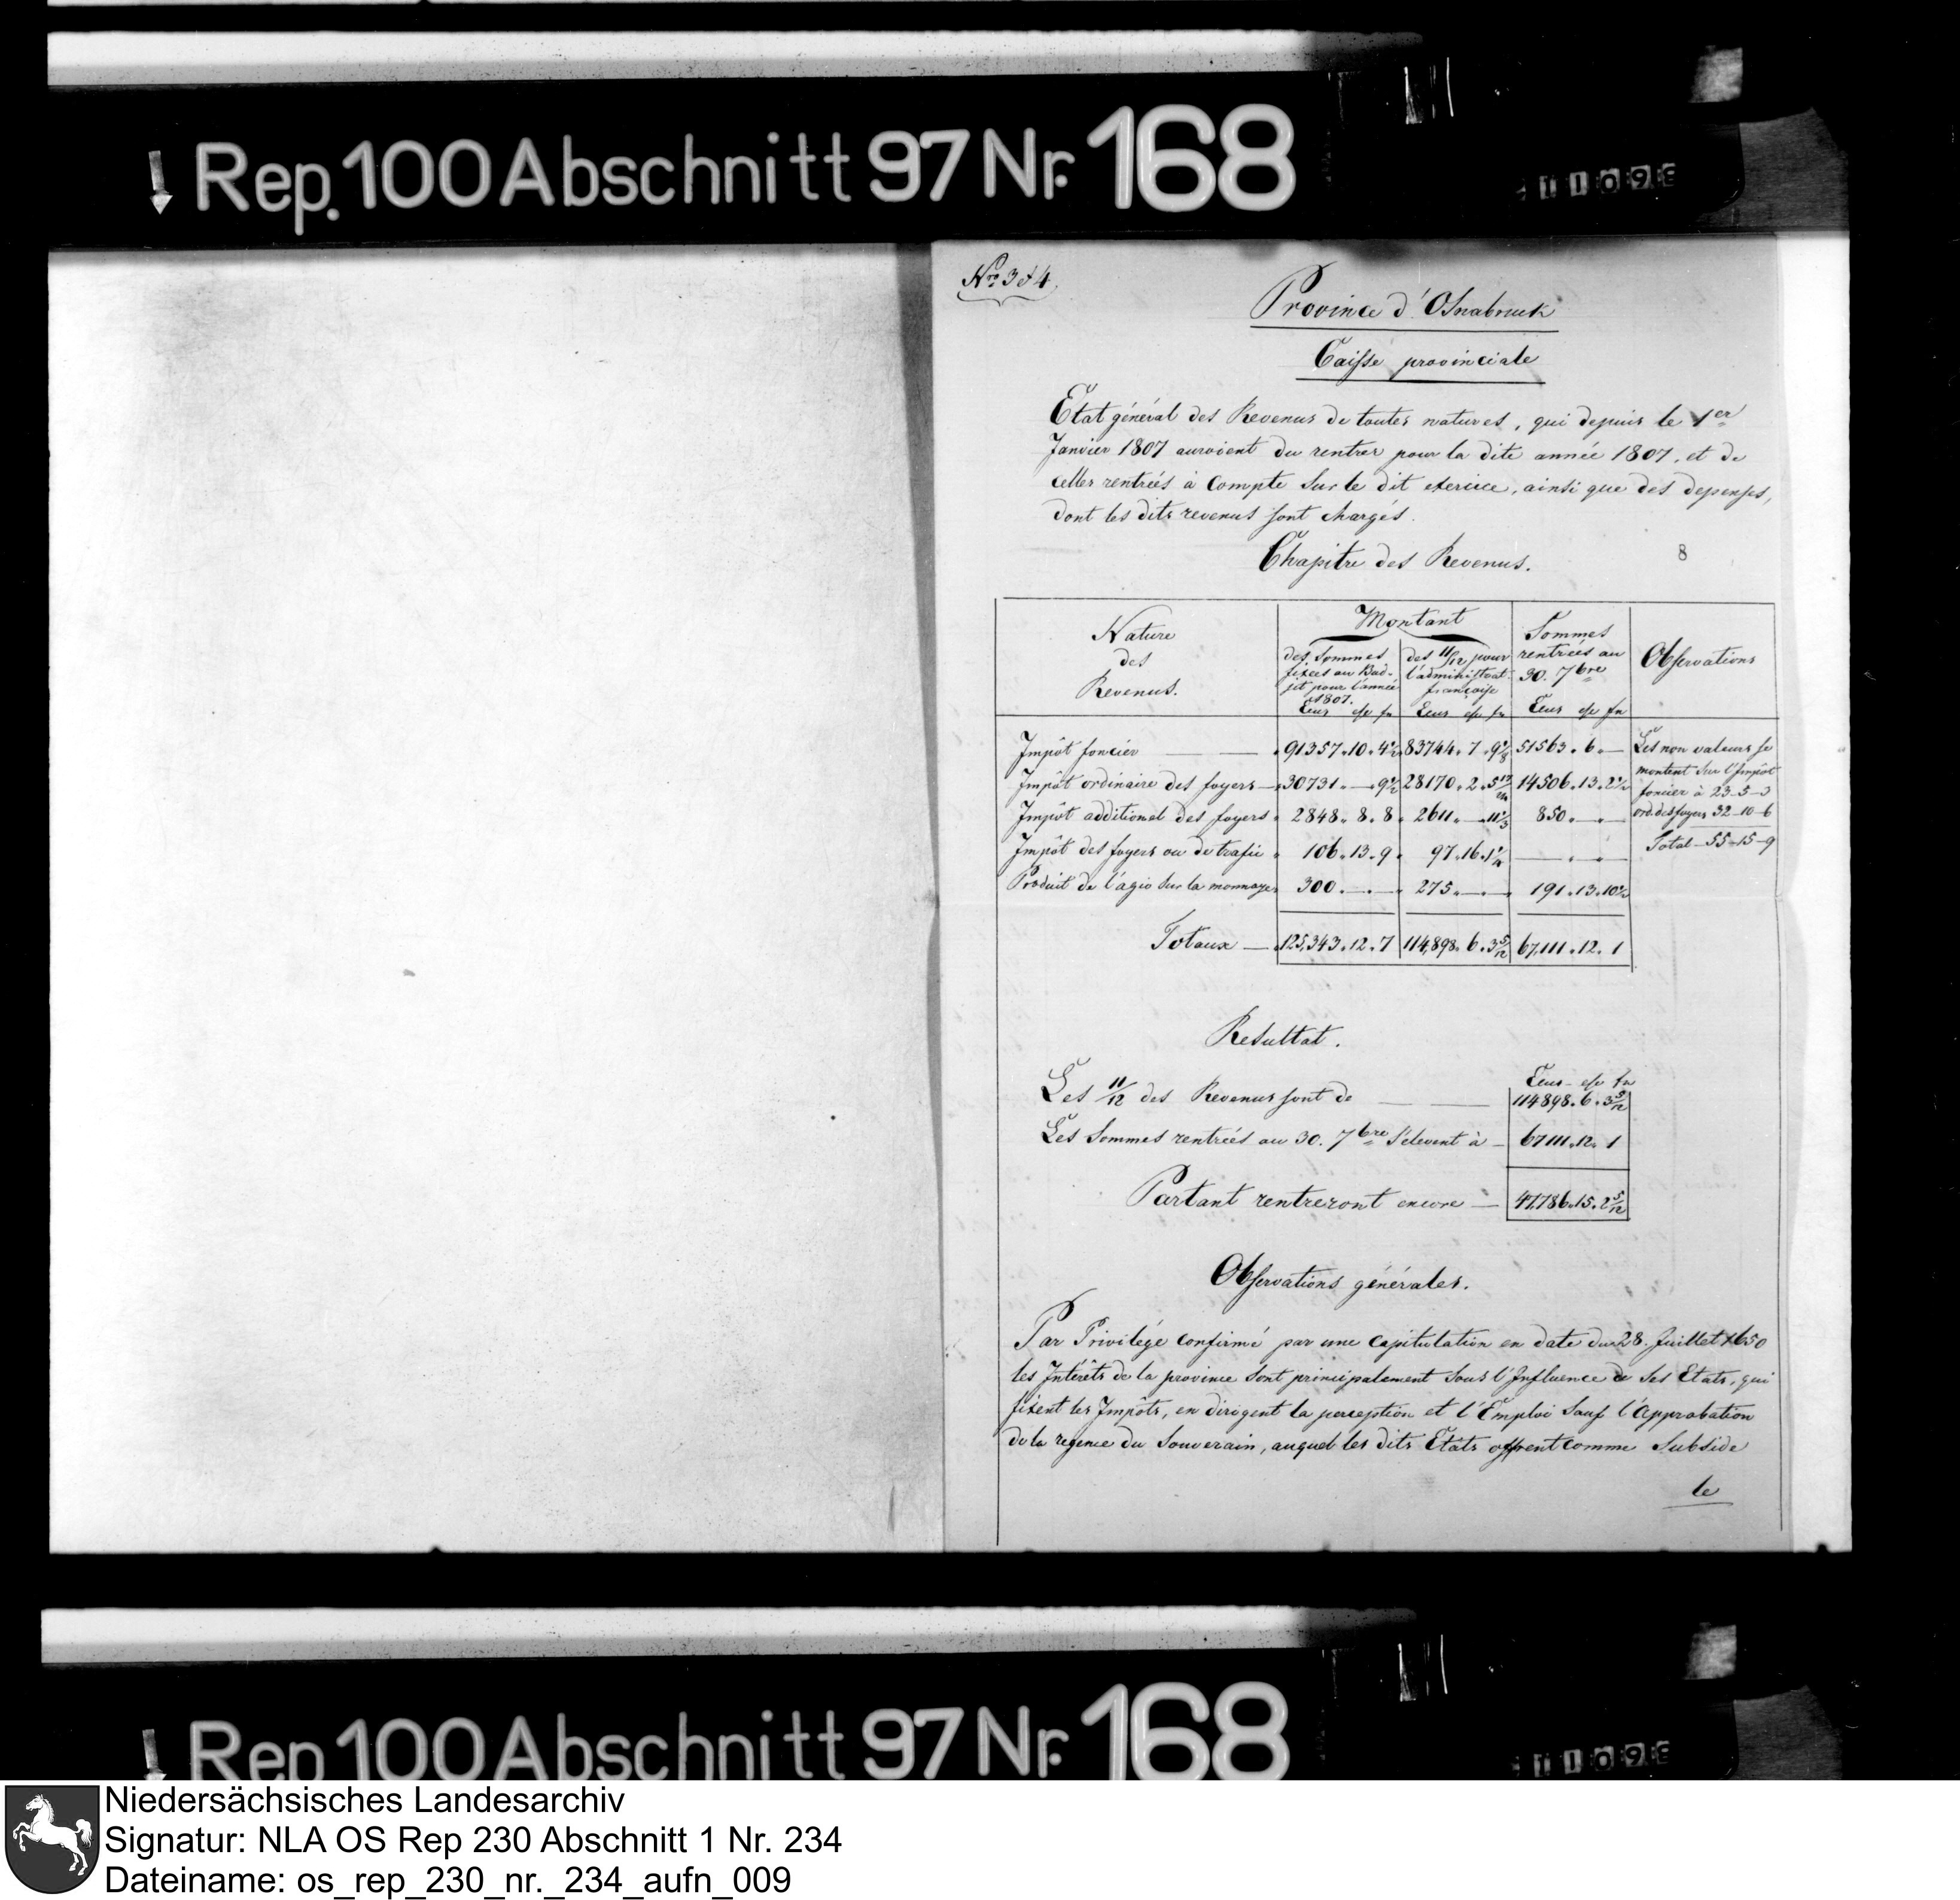 Rep. 100 Abschnitt 97 Nr. 168
11093
Nro 3 et 4.
Province d'Osnabruck
Caisse provinciale
Etat général des Revenus de toutes natures, qui depuis le 1er
Janvier 1807 auroient du rentrer pour la dite année 1807, et de
celles rentrées à Compte sur le dit exercice, ainsi que des depenses,
dont les dits revenus sont chargés.
Chapitre des Revenus.
8
Nature des Revenus.
Montant
des Sommes fixées au Budjet pour l'année 1807.
des 11/12 pour l'administrat. françoise
Sommes rentrées au 30. 7bre
Observations
Ecus Ecus Ecus
Impôt foncier 91357 . 10 . 4 1/2 83744 . 7 . 9 1/8 51563 . 6 . —
Impôt ordinaire des foyers 30731 . — . 9 1/2 28170 . 2 . 5 14506 . 13 . 2 1/2
Impôt additionel des foyers 2848 . 8 . 8 2611 . — . 11 1/3 850 . — . —
Impôt des foyers ou de trafic 106 . 13 . 9 97 . 16 . 1 1/4 — . — . —
Produit de l'agio sur la monnoye 300 . — . — 275 . — . — 191 . 13 . 10 1/2
Totaux — 125,343 . 12 . 7 114,898 . 6 . 3 5/12 67,111 . 12 . 1
Les non valeurs se
montent sur l'Impôt
foncier à 23–5–3
ord. des foyers 32–10–6
Total – 55–15–9
Resultat.
Ecus
Les 11/12 des Revenus sont de — 114898 . 6 . 3 5/12
Les Sommes rentrées au 30. 7bre s'elevent à – 67111 . 12 . 1
Partant rentreront encore — 47,786 . 15 . 2 5/12
Observations générales.
Par Privilége confirmé par une capitulation en date du 28. Juillet 1650
les Intérêts de la province sont principalement sous l'Influence de ses Etats, qui
fixent les Impôts, en dirigent la perception et l'Emploi sauf l'Approbation
de la regence du Souverain, auquel les dits Etats offrent comme Subside
le
Rep. 100 Abschnitt 97 Nr. 168
11093
Niedersächsisches Landesarchiv
Signatur: NLA OS Rep 230 Abschnitt 1 Nr. 234
Dateiname: os_rep_230_nr._234_aufn_009